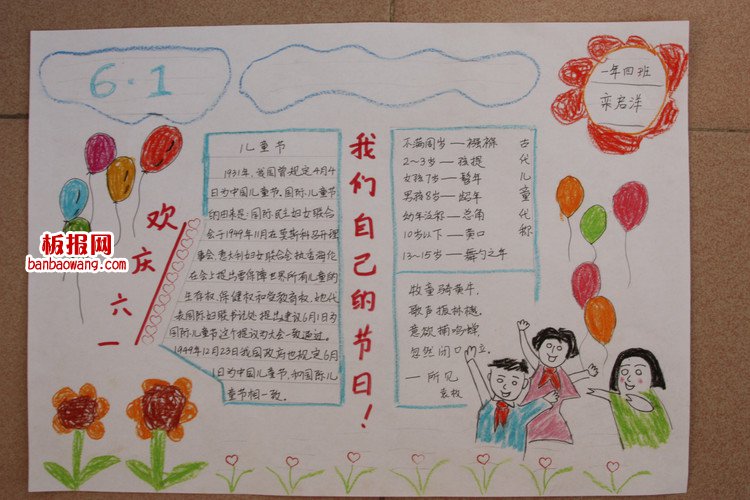 6·1
一年四班
栾启洋
儿童节
1931年,我国曾规定4月4
日为中国儿童节。国际儿童节
的由来是:国际民主妇女联合
会于1949年11月在莫斯科召开理
事会,意大利妇女联合会执委海伦
在会上提出要保障世界所有儿童的
生存权、保健权和受教育权,她代
表国际妇联书记处提出建议6月1日为
国际儿童节这个提议为大会一致通过。
1949年12月23日我国政府也规定6月
1日为中国儿童节,和国际儿
童节相一致。
欢庆六一
我们自己的节日!
不满周岁—襁褓
2~3岁—孩提
女孩7岁—髫年
男孩8岁—龆年
幼年泛称—总角
10岁以下—黄口
13~15岁—舞勺之年
古代儿童代称
牧童骑黄牛,
歌声振林樾。
意欲捕鸣蝉,
忽然闭口立。
—所见
袁枚
板报网
banbaowang.com